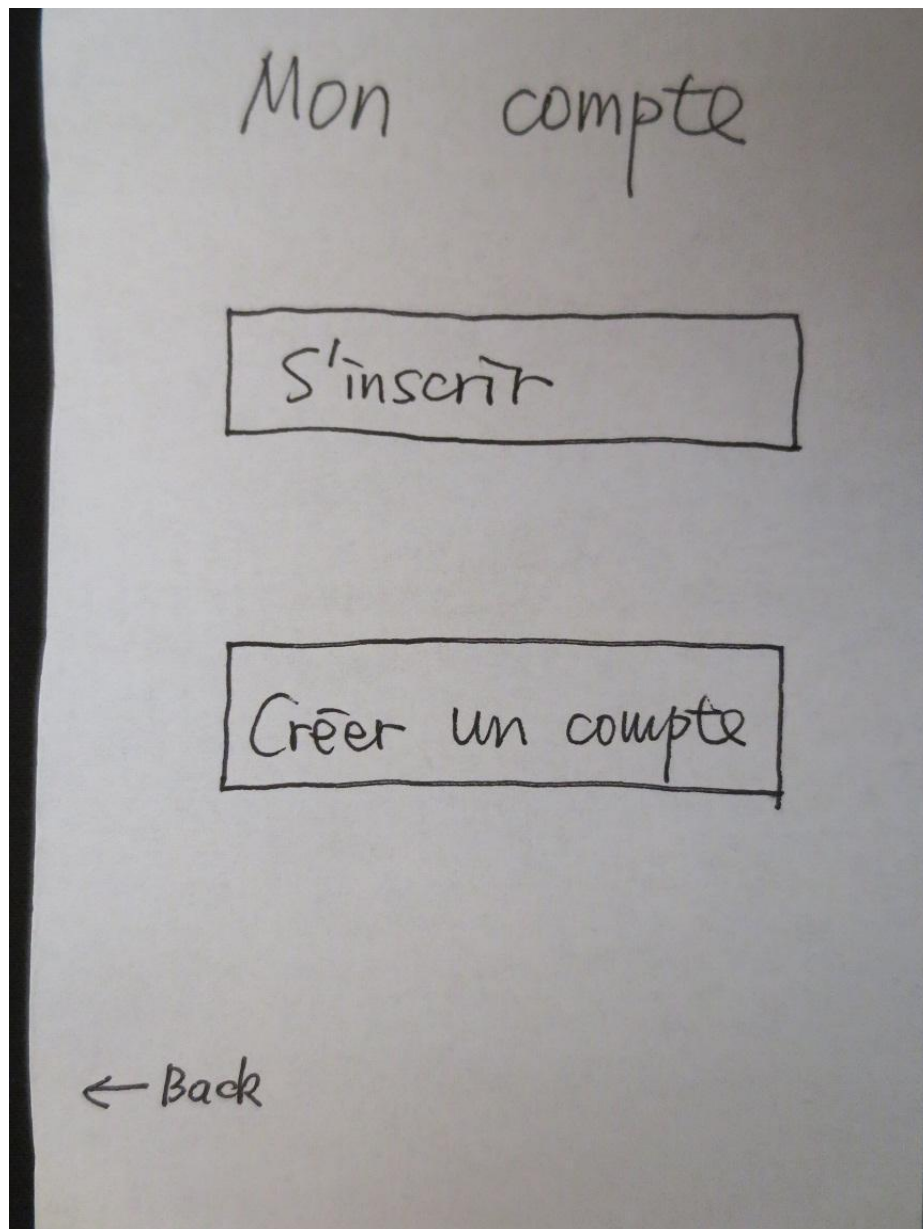 Mon compte
S'inscrir
Créer un compte
← Back